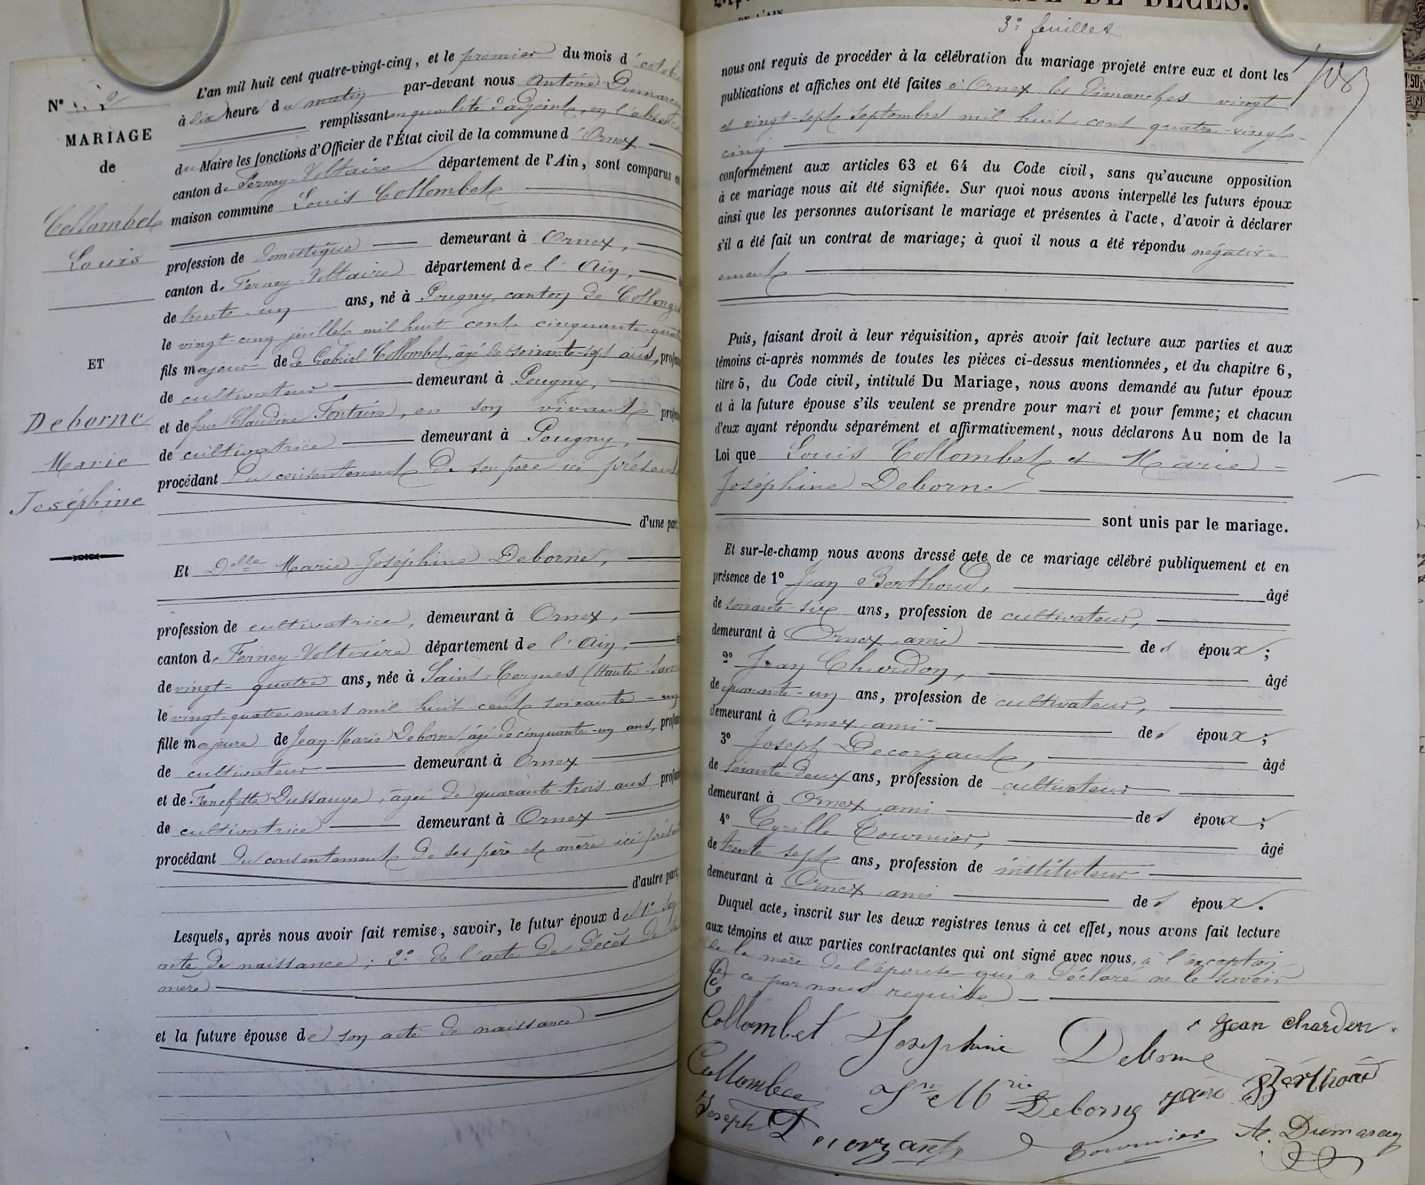 N°
MARIAGE
de
Collombet
Louis
ET
Deborne
Marie
Joséphine
L'an mil huit cent quatre-vingt-cinq, et le premier du mois d'octobre
à dix heure du matin par-devant nous Antoine Dumarcey
remplissant en qualité d'adjoint, en l'absence
du Maire les fonctions d'Officier de l'État civil de la commune d'Ornex
canton de Ferney-Voltaire département de l'Ain, sont comparus en
maison commune Louis Collombet
profession de domestique demeurant à Ornex,
canton de Ferney-Voltaire département de l'Ain,
de trente-un ans, né à Pougny, canton de Collonges
le vingt-cinq juillet mil huit cent cinquante-quatre
fils majeur de Gabriel Collombet, âgé de soixante-sept ans, profes
de cultivateur demeurant à Pougny,
et de feue Claudine Fontaine, en son vivant profes
de cultivatrice demeurant à Pougny,
procédant du consentement de son père ici présent
d'une part
Et Delle Marie Joséphine Deborne,
profession de cultivatrice, demeurant à Ornex,
canton de Ferney-Voltaire département de l'Ain,
de vingt-quatre ans, née à Saint-Cergues (Haute-Savoie
le vingt-quatre mars mil huit cent soixante-un
fille majeure de Jean-Marie Deborne, âgé de cinquante-un ans, profes
de cultivateur demeurant à Ornex
et de Françoise Dussauge, âgée de quarante-trois ans profes
de cultivatrice demeurant à Ornex
procédant du consentement de ses père et mère ici présents
d'autre part
Lesquels, après nous avoir fait remise, savoir, le futur époux de 1° son
acte de naissance; 2° de l'acte de décès de sa
mère
et la future épouse de son acte de naissance
ACTE DE DÉCÈS.
3e feuillet
nous ont requis de procéder à la célébration du mariage projeté entre eux et dont les
publications et affiches ont été faites à Ornex les Dimanches vingt
et vingt-sept Septembre mil huit cent quatre-vingt-
cinq
conformément aux articles 63 et 64 du Code civil, sans qu'aucune opposition
à ce mariage nous ait été signifiée. Sur quoi nous avons interpellé les futurs époux
ainsi que les personnes autorisant le mariage et présentes à l'acte, d'avoir à déclarer
s'il a été fait un contrat de mariage; à quoi il nous a été répondu négative-
ment
Puis, faisant droit à leur réquisition, après avoir fait lecture aux parties et aux
témoins ci-après nommés de toutes les pièces ci-dessus mentionnées, et du chapitre 6,
titre 5, du Code civil, intitulé Du Mariage, nous avons demandé au futur époux
et à la future épouse s'ils veulent se prendre pour mari et pour femme; et chacun
d'eux ayant répondu séparément et affirmativement, nous déclarons Au nom de la
Loi que Louis Collombet et Marie-
Joséphine Deborne
sont unis par le mariage.
Et sur-le-champ nous avons dressé acte de ce mariage célébré publiquement et en
présence de 1° Jean Berthoud, âgé
de soixante-six ans, profession de cultivateur,
demeurant à Ornex ami des époux;
2° Jean Chardon, âgé
de quarante-un ans, profession de cultivateur,
demeurant à Ornex ami des époux;
3° Joseph Decorzant, âgé
de ans, profession de cultivateur
demeurant à Ornex ami des époux;
4° Cyrille Tournier, âgé
de trente sept ans, profession de instituteur
demeurant à Ornex ami des époux.
Duquel acte, inscrit sur les deux registres tenus à cet effet, nous avons fait lecture
aux témoins et aux parties contractantes qui ont signé avec nous, à l'exception
de la mère de l'épouse qui a déclaré ne le savoir
de ce par nous requise
Collombet Josephine Deborne Jean Chardon
Collombet Jn Mrie Deborne Jean Berthoud
Joseph Decorzant Tournier At. Dumarcey